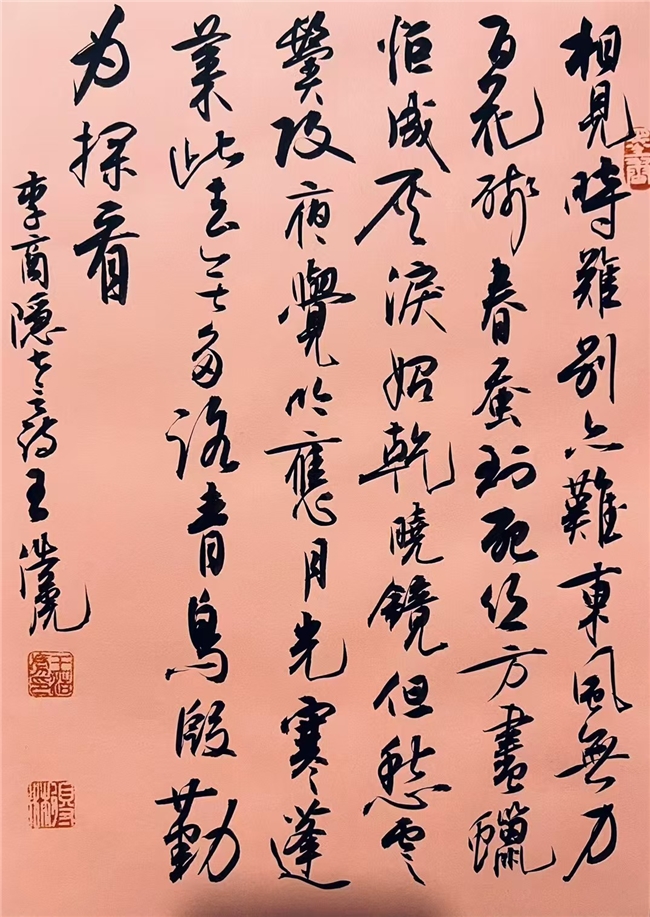 相見時難別亦難東風無力
百花殘春蚕到死丝方盡蠟
炬成灰淚始乾曉鏡但愁雲
鬢改夜覺吟應月光寒蓬
莱此去無多路青鳥殷勤
为探看
李商隱七言诗王浩